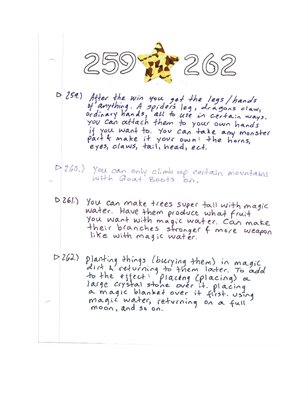 259 262
▷ 259.) After the win you get the legs/hands
of anything. A spiders leg, dragons claw,
ordinary hands, all to use in certain ways.
you can attach them to your own hands
if you want to. You can take any monster
part & make it your own: the horns,
eyes, claws, tail, head, ect.
▷ 260.) You can only climb up certain mountains
with Goat Boots on.
▷ 261.) You can make trees super tall with magic
water. Have them produce what fruit
you want with magic water. Can make
their branches stronger & more weapon
like with magic water.
▷ 262) planting things (burying them) in magic
dirt & returning to them later. To add
to the effect: Placing (placing) a
large crystal stone over it. placing
a magic blanket over it first. using
magic water, returning on a full
moon, and so on.